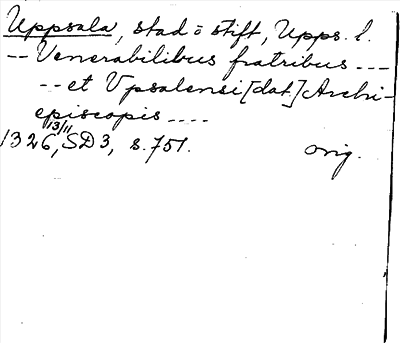 Uppsala, stad o stift, Upps. l.
-- Venerabilibus fratribus ---
-- et Vpsalensi [dat.] Archi-
episcopis ----
1326 13/11, SD3, s. 751. orig.